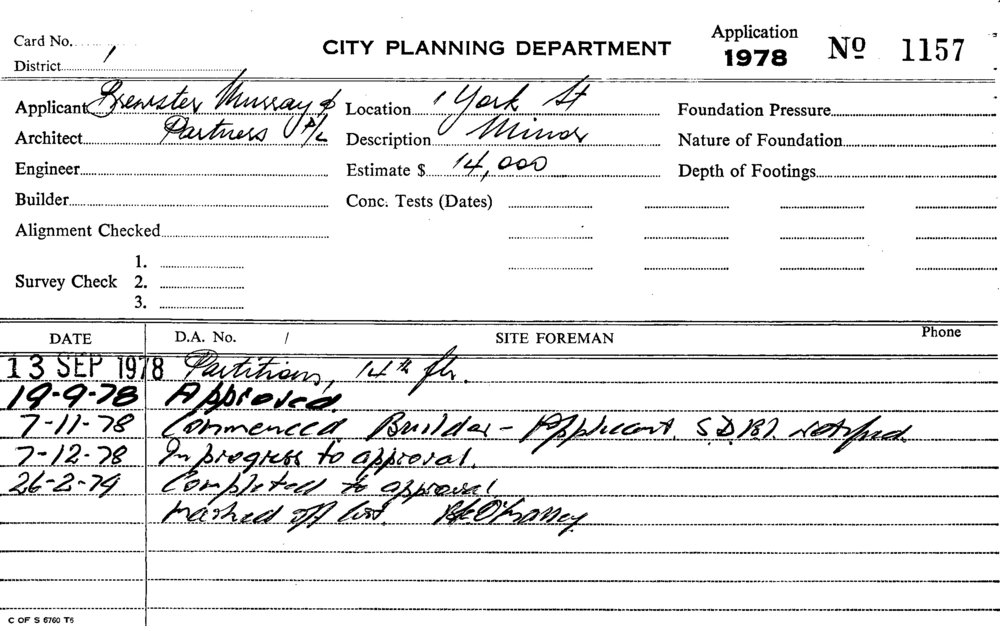 Card No.
District 1
CITY PLANNING DEPARTMENT
Application 1978 No 1157
Applicant Brewster Murray &
Architect Partners P/L
Engineer
Builder
Alignment Checked
Survey Check 1.
2.
3.
Location 1 York St
Description Minor
Estimate $ 14,000
Conc. Tests (Dates)
Foundation Pressure
Nature of Foundation
Depth of Footings
DATE D.A. No. / SITE FOREMAN Phone
13 SEP 1978 Partitions, 14th flr.
19-9-78 Approved.
7-11-78 Commenced Builder - Applicant. notified.
7-12-78 In progress to approval.
26-2-79 Completed to approval
marked off list.
C OF S 6760 T5